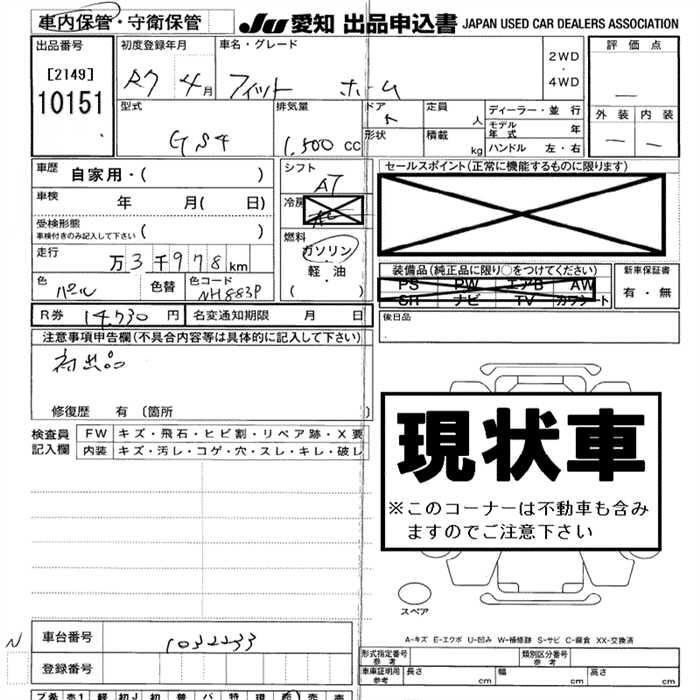 車内保管・守衛保管 JU 愛知 出品申込書 JAPAN USED CAR DEALERS ASSOCIATION
出品番号
[2149]
10151
初度登録年月
R7 4月
車名・グレード
フィット ホーム
2WD
・
4WD
評価点
外装 内装
型式
GS4
排気量
1,500 cc
ドア
5
形状
定員 人
積載 kg
ディーラー・並行
モデル年式 年
ハンドル 左・右
車歴
自家用・( )
車検 年 月( 日)
受検形態
車検付きのみ記入して下さい ( )
走行
万3千978km
色
パール
色替
色コード
NH883P
シフト
AT
冷房
AC
燃料
ガソリン
・
軽油
・
( )
セールスポイント(正常に機能するものに限ります)
装備品(純正品に限り○をつけてください)
PS PW エアB AW
SR ナビ TV カワシート
新車保証書
有・無
R券 14,730円 名変通知期限 月 日
後日品
注意事項申告欄(不具合内容等は具体的に記入して下さい)
初出品
修復歴 有〔箇所 〕
検査員記入欄
FW キズ・飛石・ヒビ割・リペア跡・X要
内装 キズ・汚レ・コゲ・穴・スレ・キレ・破レ
現状車
※このコーナーは不動車も含み
ますのでご注意下さい
スペア
A-キズ E-エクボ U-凹み W-補修跡 S-サビ C-腐食 XX-交換済
N
車台番号 1032233
登録番号
形式指定番号 参考
類別区分番号 参考
車庫証明用 参考 長さ cm 幅 cm 高さ cm